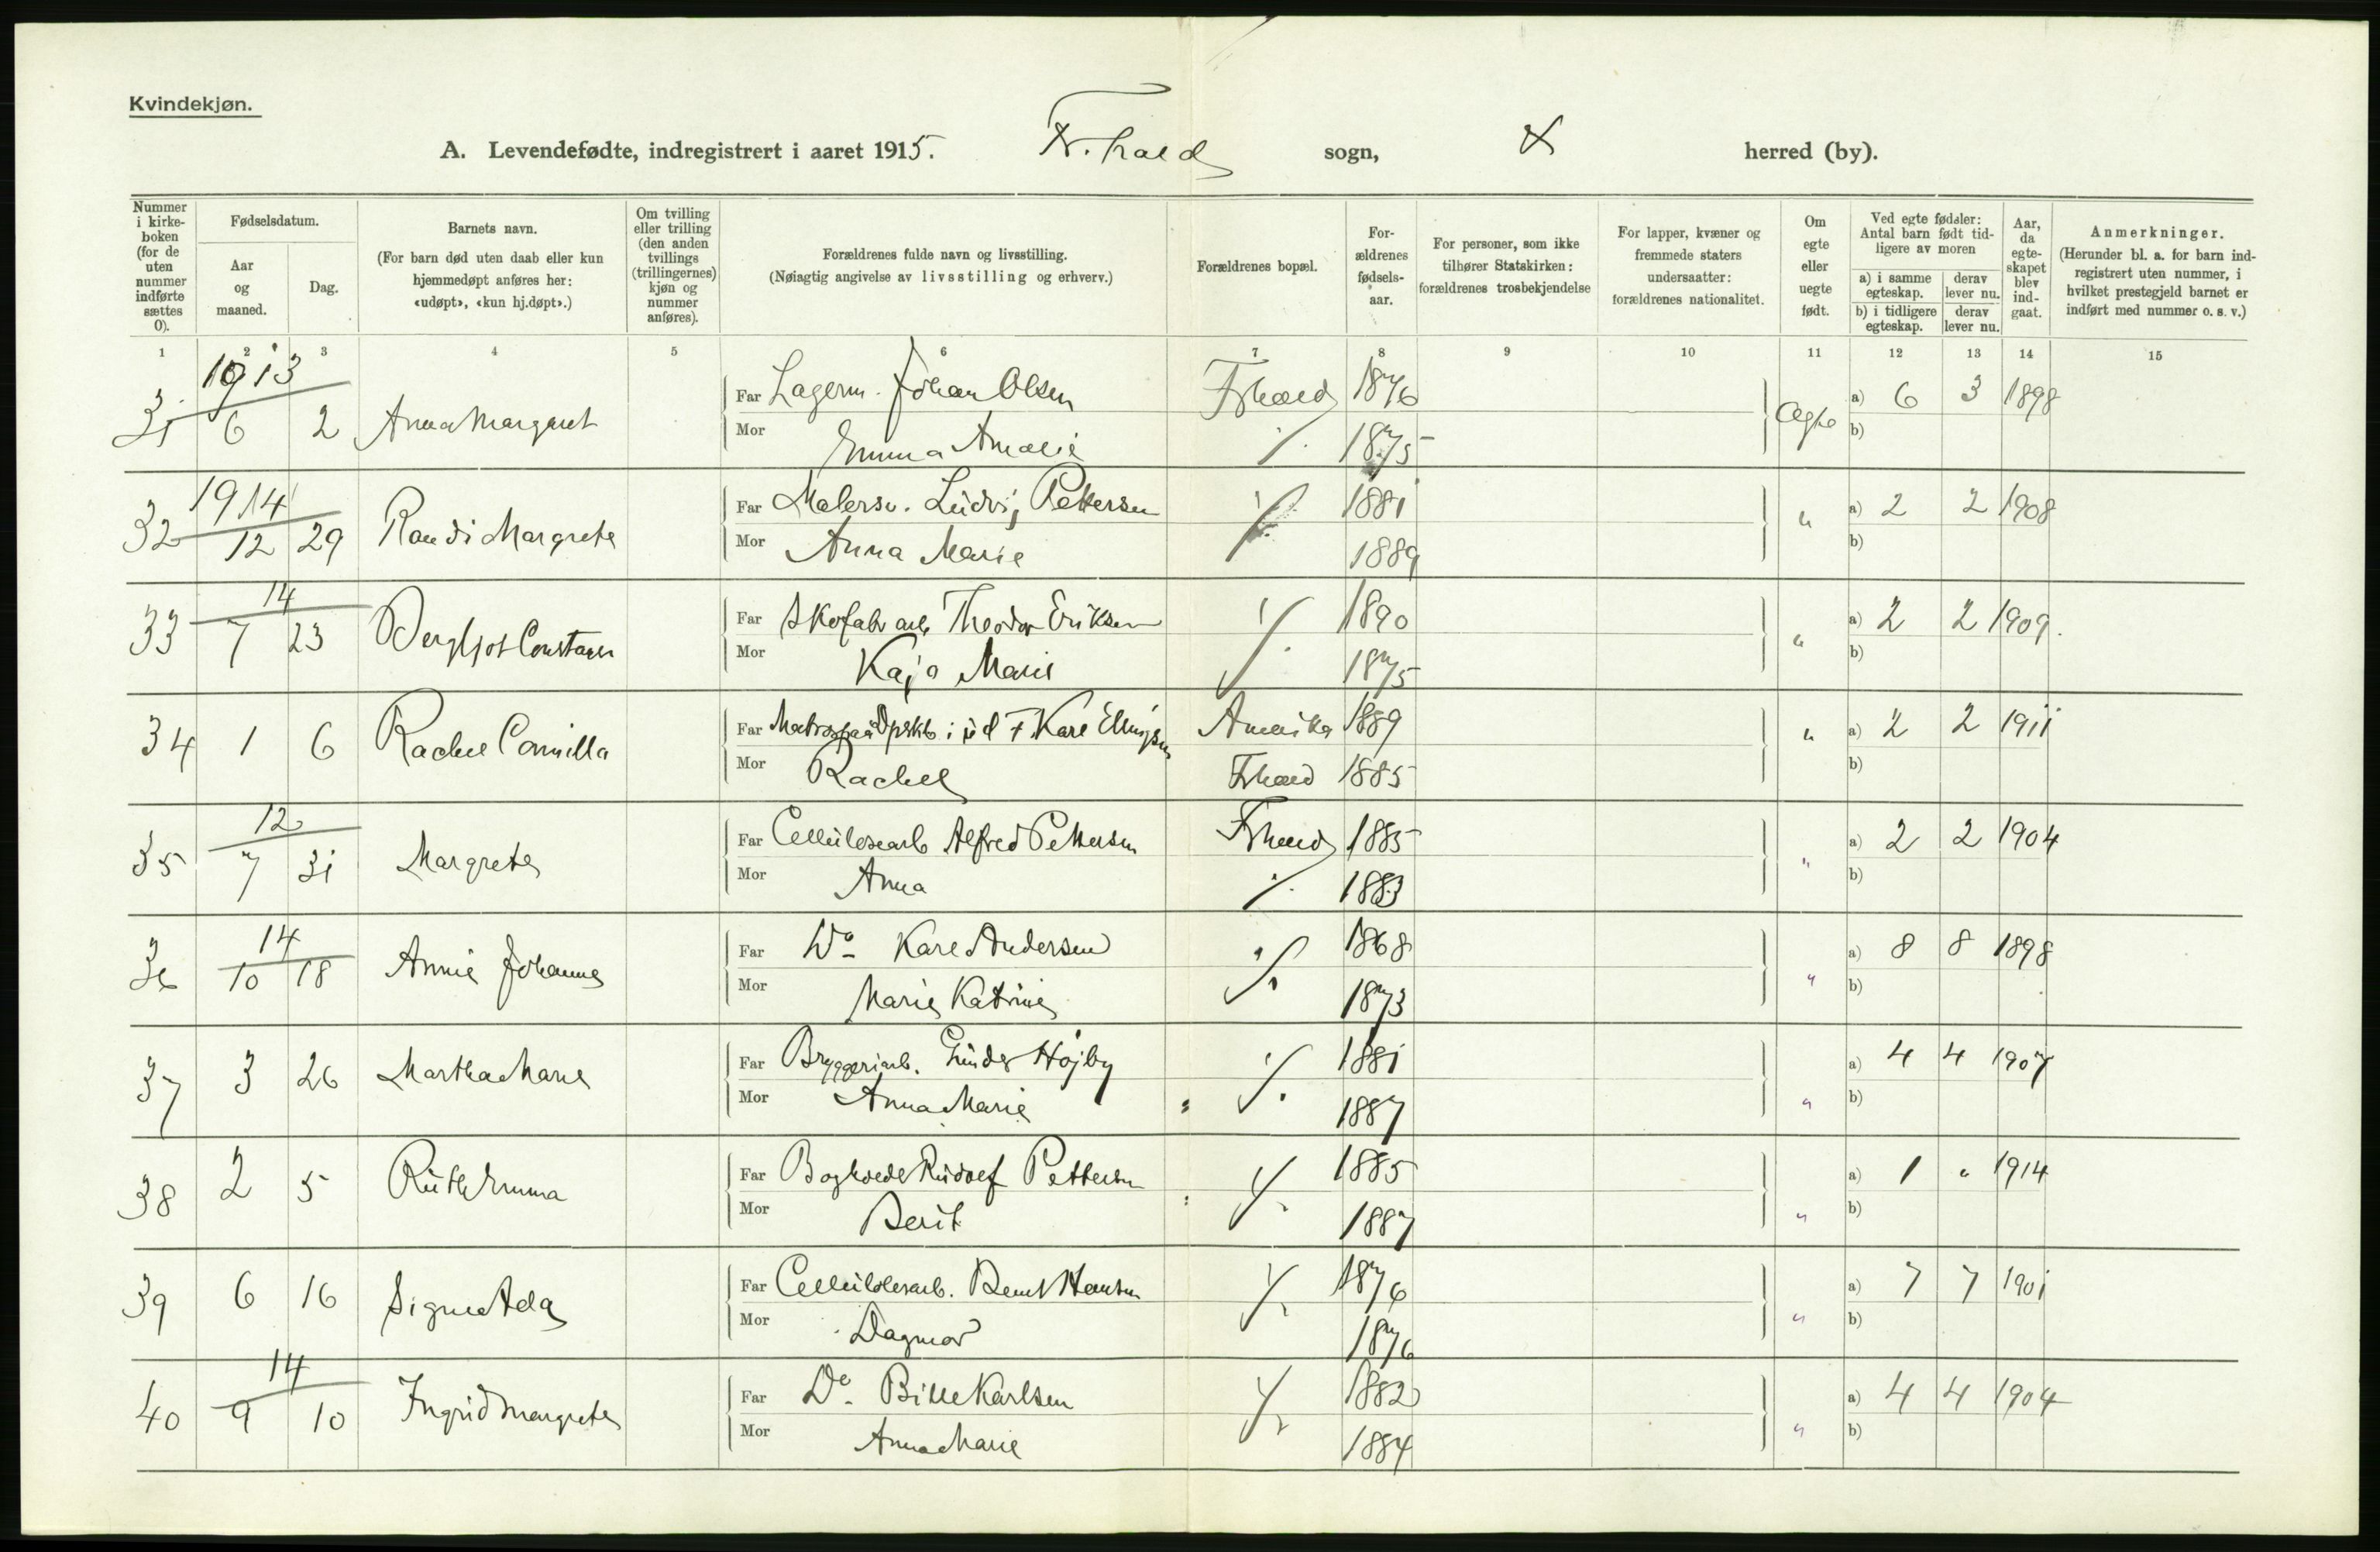 Kvindekjøn.
A. Levendefødte, indregistrert i aaret 1915. Fr.hald sogn, herred (by).
Nummer i kirke-boken (for de uten nummer indførte sættes 0).
Fødselsdatum.
Aar og maaned.
Dag.
Barnets navn.
(For barn død uten daab eller kun hjemmedøpt anføres her: «udøpt», «kun hj.døpt».)
Om tvilling eller trilling (den anden tvillings (trillingernes) kjøn og nummer anføres).
Forældrenes fulde navn og livsstilling.
(Nøiagtig angivelse av livsstilling og erhverv.)
Forældrenes bopæl.
For-ældrenes fødsels-aar.
For personer, som ikke tilhører Statskirken: forældrenes trosbekjendelse
For lapper, kvæner og fremmede staters undersaatter: forældrenes nationalitet.
Om egte eller uegte født.
Ved egte fødsler: Antal barn født tid-ligere av moren
a) i samme egteskap. derav lever nu.
b) i tidligere egteskap. derav lever nu.
Aar, da egte-skapet blev ind-gaat.
Anmerkninger.
(Herunder bl. a. for barn ind-registrert uten nummer, i hvilket prestegjeld barnet er indført med nummer o. s. v.)
1 2 3 4 5 6 7 8 9 10 11 12 13 14 15
1913
31 6 2 Anna Margaret Far Lagerm. Johan Olsen Frhald 1876 Ægte a) 6 3 1898
Mor Emma Amalie 1875 b)
1914
32 12 29 Randi Margrete Far Malersv. Ludvig Pettersen 1881 " a) 2 2 1908
Mor Anna Marie 1889 b)
14
33 7 23 Bergljot Constance Far Skofabr arb Theodor Eriksen 1890 " a) 2 2 1909.
Mor Kaja Marie 1875 b)
34 1 6 Rachel Camilla Far Karl Ellingsen Amerika 1889 " a) 2 2 1911
Mor Rachel Frhald 1885 b)
12
35 7 31 Margrete Far Cellulosearb Alfred Pettersen Frhald 1885 " a) 2 2 1904
Mor Anna 1883 b)
14
36 10 18 Annie Johanne Far Do Karl Andersen 1868 " a) 8 8 1898
Mor Marie Katrine 1873 b)
37 3 26 Martha Marie Far Bryggeriarb. Højby 1881 " a) 4 4 1907
Mor Anna Marie 1887 b)
38 2 5 Ruth Emma Far Rudolf Pettersen 1885 " a) 1 " 1914
Mor Berit 1887 b)
39 6 16 Signe Ada Far Cellulosearb. Bernt Hansen 1876 " a) 7 7 1901
Mor Dagmar 1876 b)
14
40 9 10 Ingrid Margrete Far Do Bille Karlsen 1882 " a) 4 4 1904
Mor Anna Marie 1884 b)